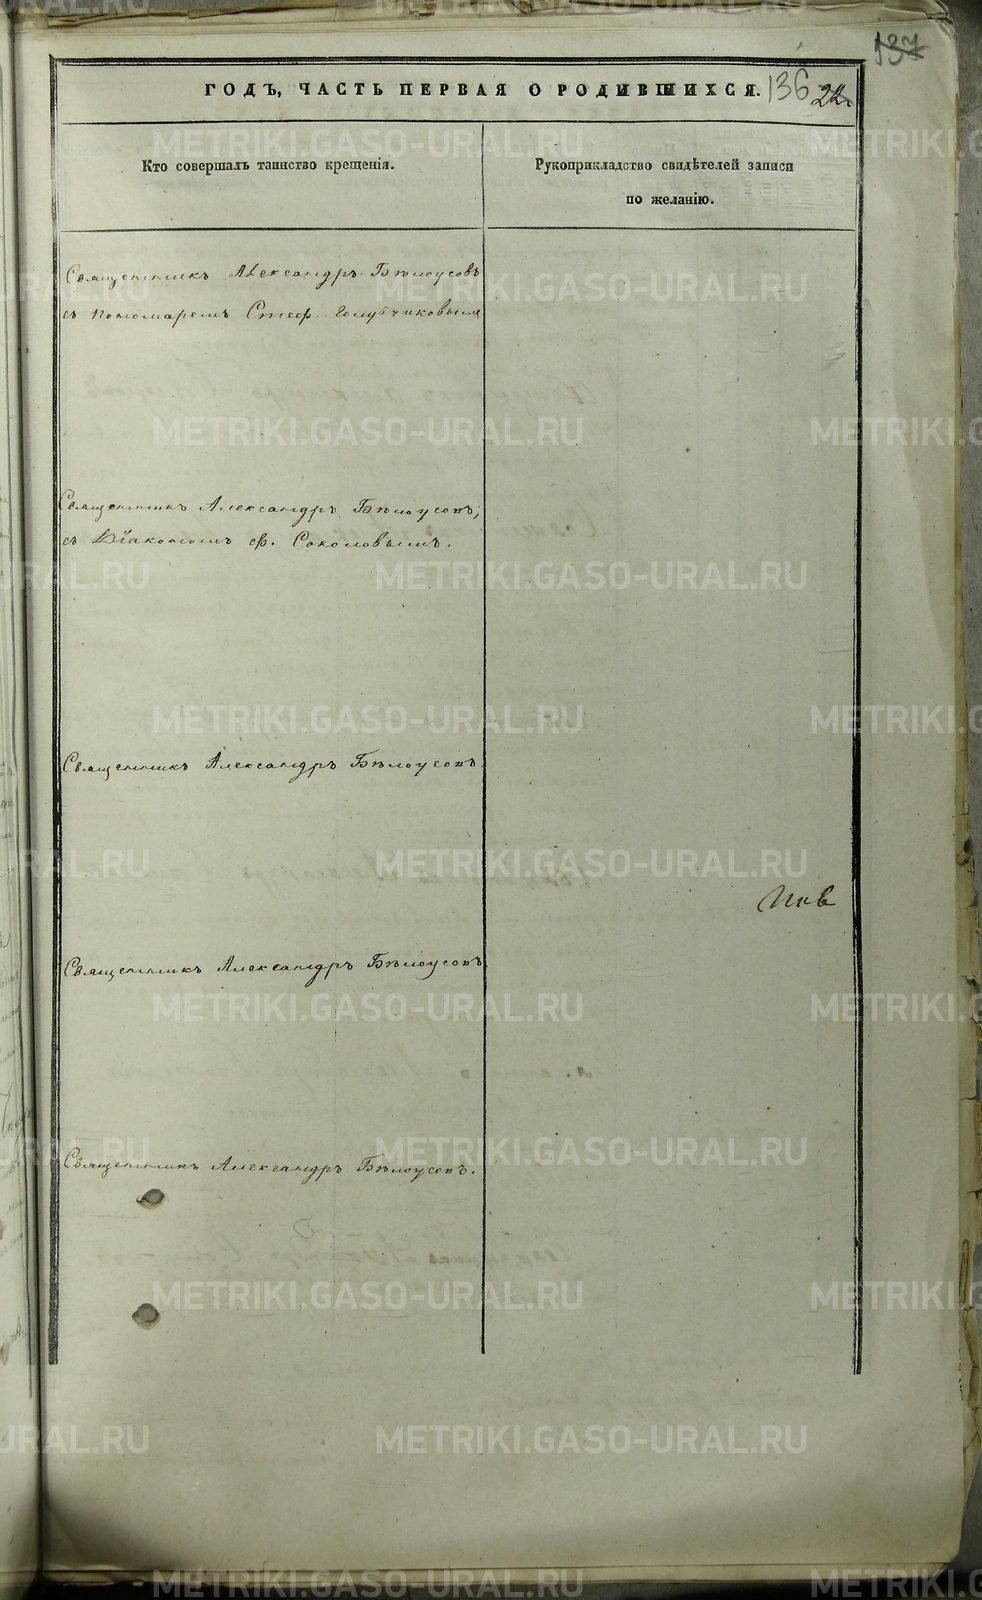 137
136 22
ГОДЪ, ЧАСТЬ ПЕРВАЯ О РОДИВШИХСЯ.
Кто совершалъ таинство крещенія.
Рукоприкладство свидѣтелей записи
по желанію.
Священникъ Александръ Бѣлоусовъ
съ Пономаремъ Стеф. Голубчиковымъ
Священникъ Александръ Бѣлоусовъ,
съ Діакономъ Ѳ. Соколовымъ.
Священникъ Александръ Бѣлоусовъ.
Священникъ Александръ Бѣлоусовъ
Священникъ Александръ Бѣлоусовъ.
METRIKI.GASO-URAL.RU